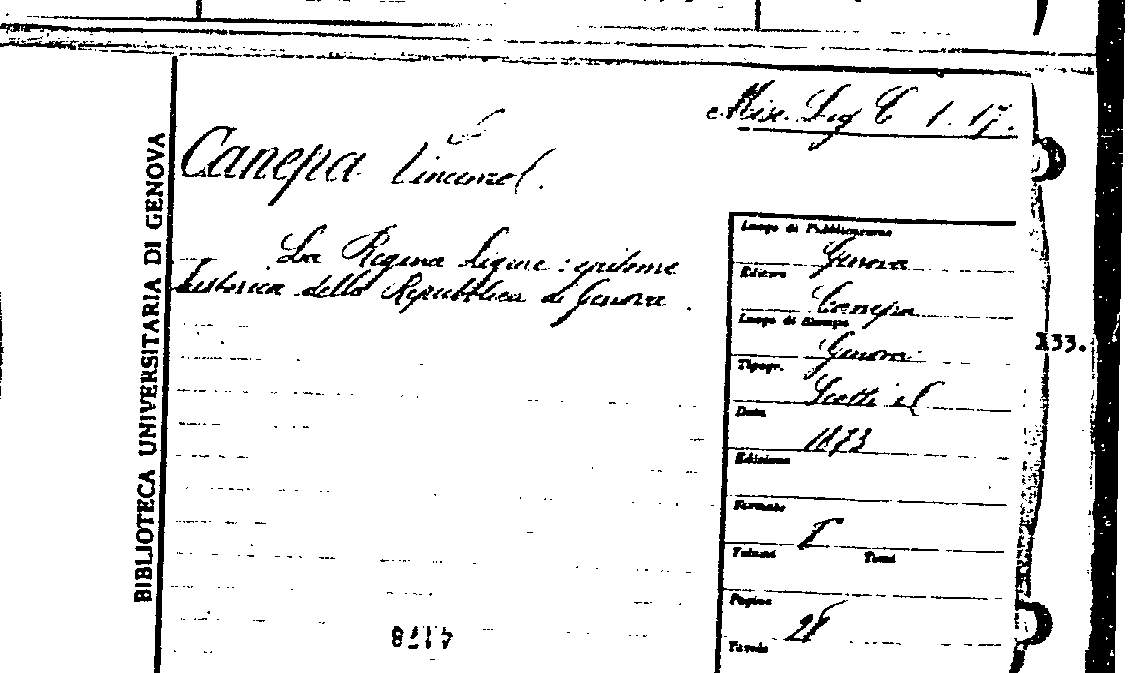 Misc. Lig C 1. 17.
Canepa
La Regina Ligure : epitome
historica della Repubblica di Genova.
BIBLIOTECA UNIVERSITARIA DI GENOVA
Luogo di Pubblicazione
Genova
Editore
Canepa
Luogo di Stampa
Genova
Tipogr.
Data
1873
Edizione
Formato
Volumi Tomi
Pagine
Tavole
133.